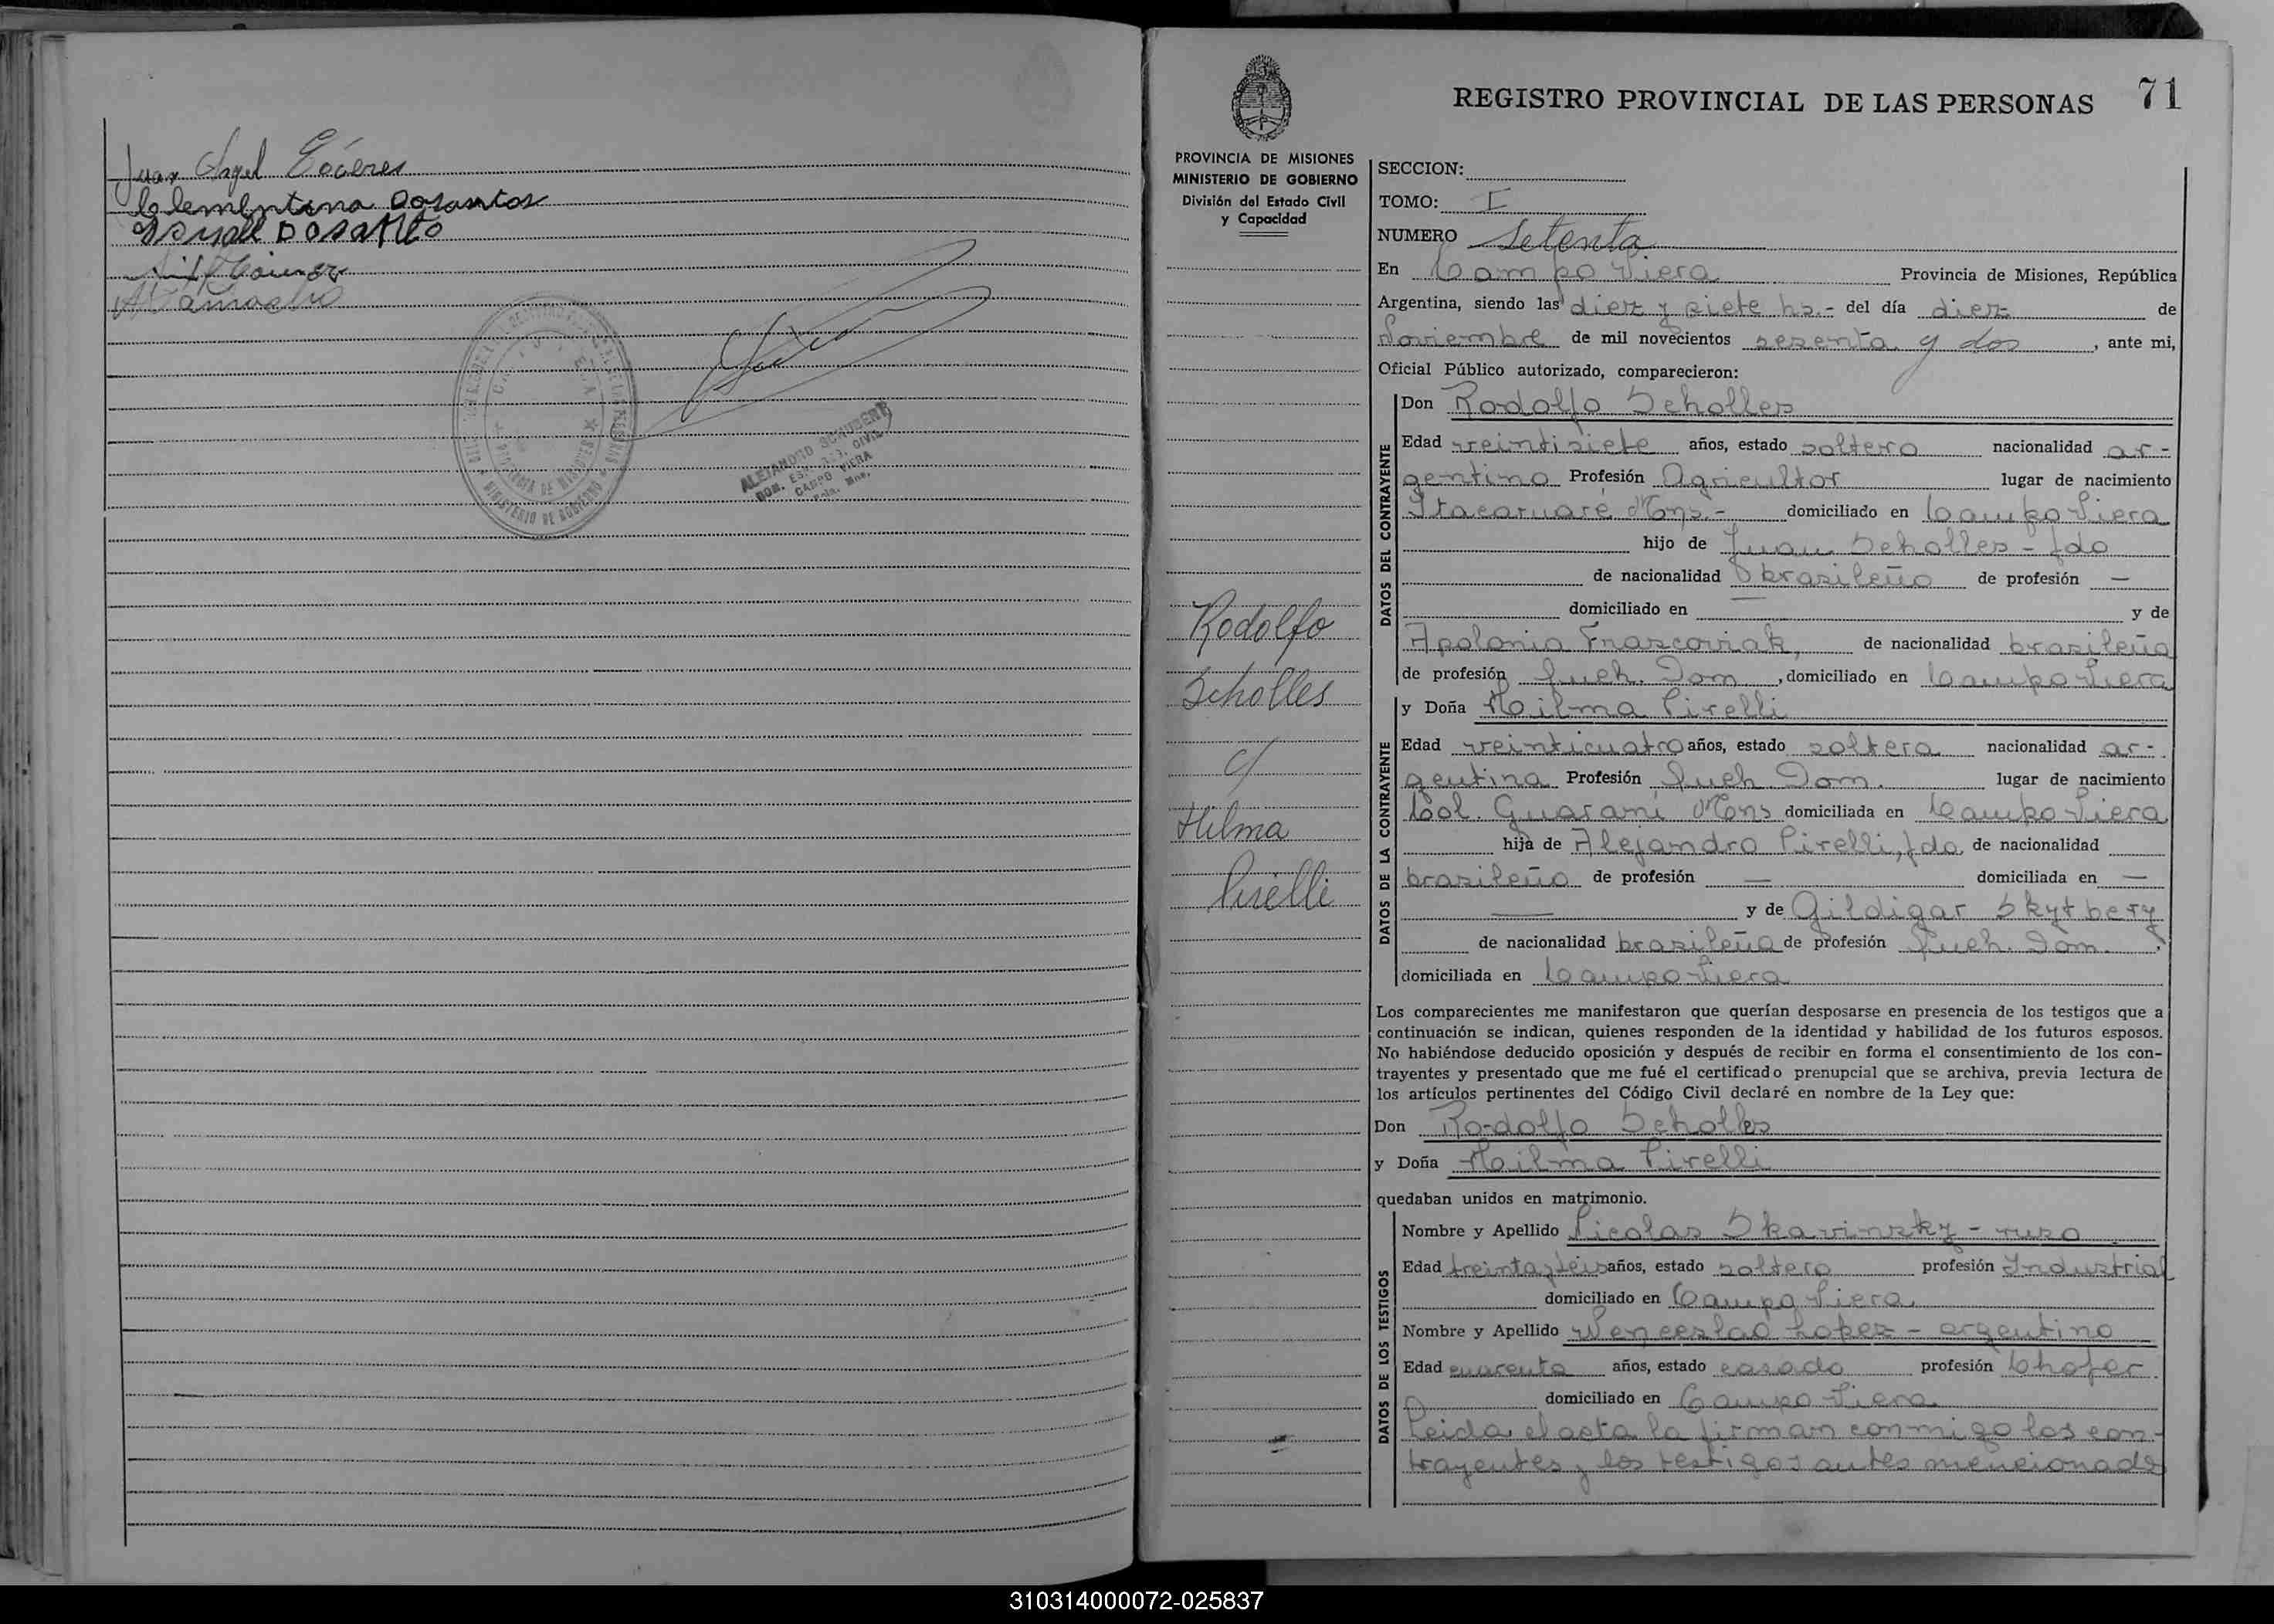 Juan Angel Cáceres
Clementina Dosantos
ALEJANDRO SCHUBERT
CAMPO VIERA
REGISTRO PROVINCIAL DE LAS PERSONAS 71
PROVINCIA DE MISIONES
MINISTERIO DE GOBIERNO
División del Estado Civil
y Capacidad
Rodolfo
Scholles
c/
Hilma
Pirelli
SECCION:
TOMO: I
NUMERO Setenta
En Campo Viera Provincia de Misiones, República
Argentina, siendo las diez y siete hs.- del día diez de
Noviembre de mil novecientos sesenta y dos, ante mi,
Oficial Público autorizado, comparecieron:
DATOS DEL CONTRAYENTE
Don Rodolfo Scholles
Edad veintisiete años, estado soltero nacionalidad ar-
gentino Profesión Agricultor lugar de nacimiento
Itacaruaré Mns.- domiciliado en Campo Viera
hijo de Juan Scholles - fdo
de nacionalidad brasileño de profesión —
domiciliado en — y de
Apolonia Frascoviak, de nacionalidad brasileña
de profesión Queh. Dom, domiciliado en Campo Viera
DATOS DE LA CONTRAYENTE
y Doña Hilma Pirelli
Edad veinticuatro años, estado soltera nacionalidad ar-
gentina Profesión Queh. Dom. lugar de nacimiento
Col. Guaraní Mns domiciliada en Campo Viera
hija de Alejandro Pirelli, fdo de nacionalidad
brasileño de profesión — domiciliada en —
— y de Gildigar Skytbery
de nacionalidad brasileña de profesión Queh. Dom.,
domiciliada en Campo Viera
Los comparecientes me manifestaron que querían desposarse en presencia de los testigos que a
continuación se indican, quienes responden de la identidad y habilidad de los futuros esposos.
No habiéndose deducido oposición y después de recibir en forma el consentimiento de los con-
trayentes y presentado que me fué el certificado prenupcial que se archiva, previa lectura de
los artículos pertinentes del Código Civil declaré en nombre de la Ley que:
Don Rodolfo Scholles
y Doña Hilma Pirelli
quedaban unidos en matrimonio.
DATOS DE LOS TESTIGOS
Nombre y Apellido Nicolas Skavinsky - ruso
Edad treinta y seis años, estado soltero profesión Industrial
domiciliado en Campo Viera
Nombre y Apellido Wenceslao Lopez - argentino
Edad cuarenta años, estado casado profesión Chofer
domiciliado en Campo Viera
Leida el acta la firman conmigo los con-
trayentes y los testigos antes mencionado
310314000072-025837